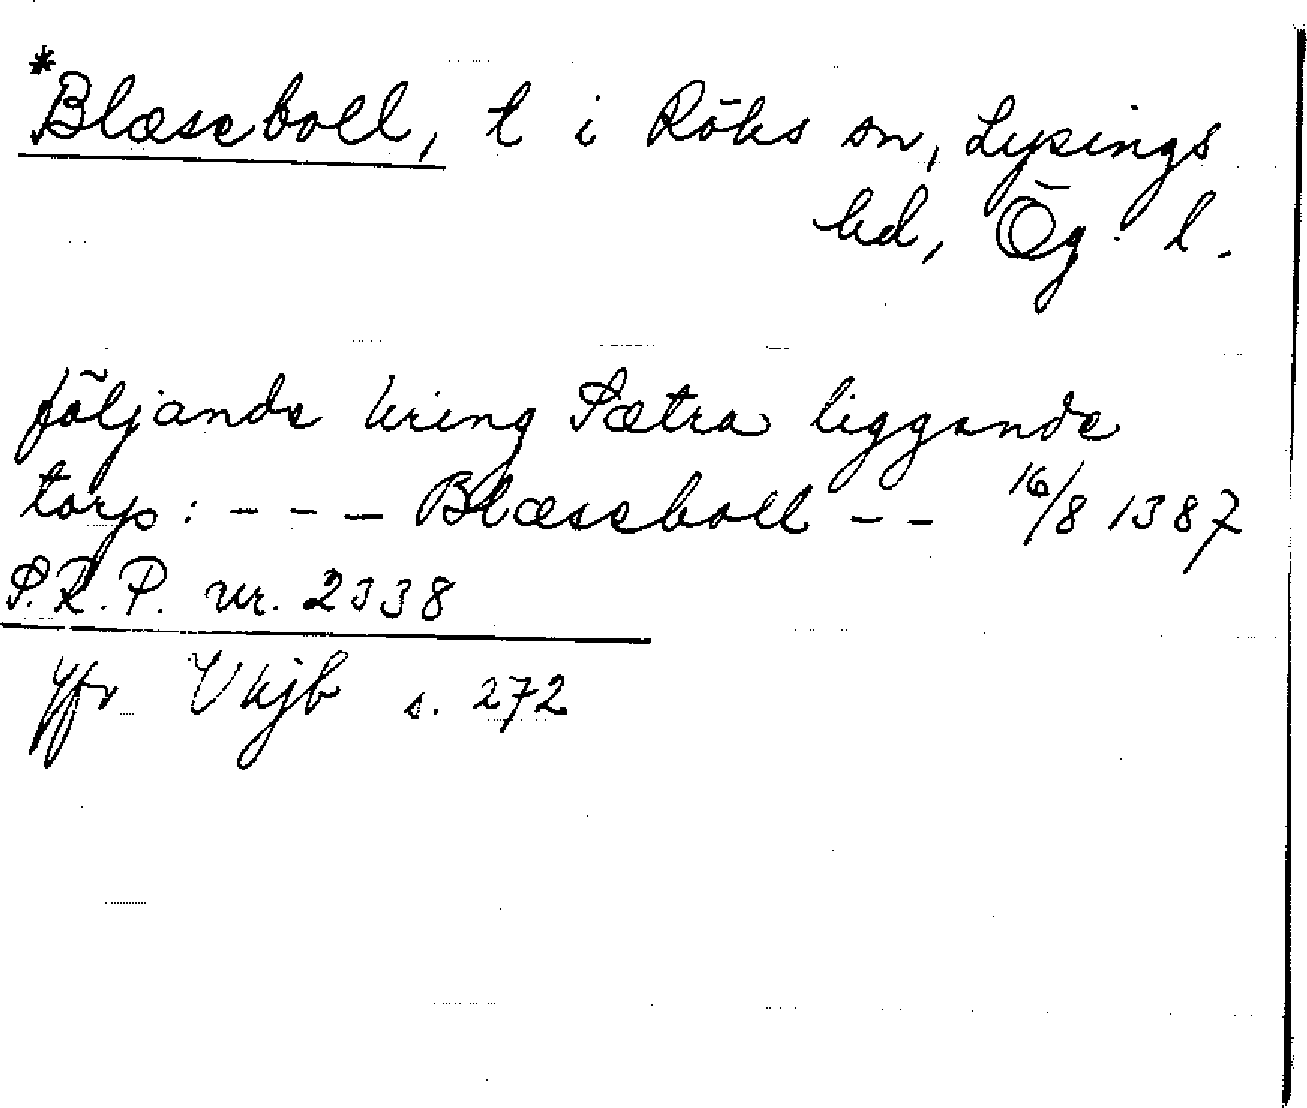 *Blæseboll, t i Röks sn, Lysings
hd, Ög. l.
följande kring Sætra liggande
torp: - - - Blæseboll - - 16/8 1387
S.R.P. nr. 2338
jfr Vkjb s. 272